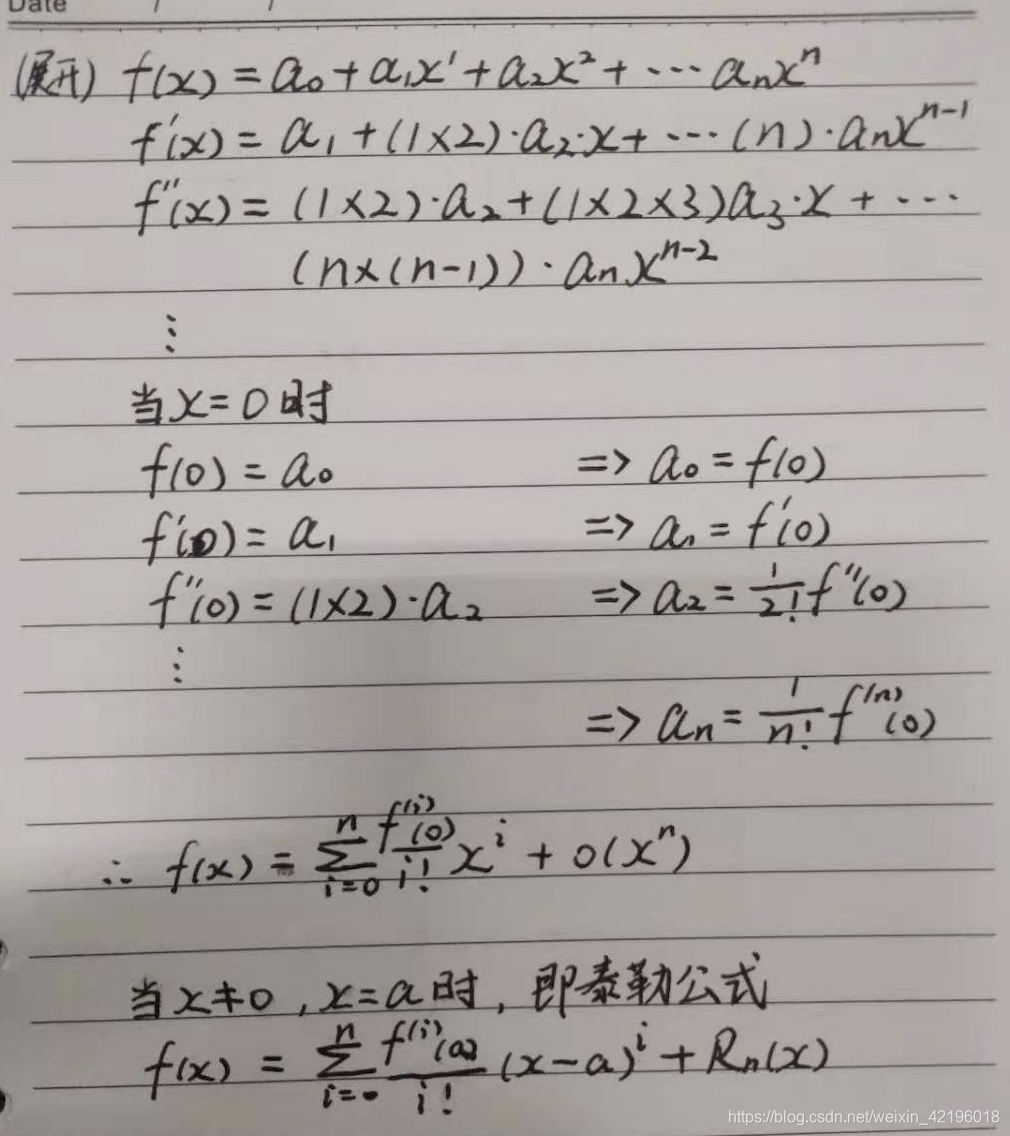 Date / /
(展开) f(x) = a₀ + a₁x¹ + a₂x² + ⋯ aₙxⁿ
f′(x) = a₁ + (1×2)·a₂·x + ⋯ (n)·aₙxⁿ⁻¹
f″(x) = (1×2)·a₂ + (1×2×3)a₃·x + ⋯
(n×(n-1))·aₙxⁿ⁻²
⋮
当x=0时
f(0) = a₀ => a₀ = f(0)
f′(0) = a₁ => a₁ = f′(0)
f″(0) = (1×2)·a₂ => a₂ = 1/2! f″(0)
⋮
=> aₙ = 1/n! f⁽ⁿ⁾(0)
∴ f(x) = ∑ⁿᵢ₌₀ f⁽ⁱ⁾(0)/i! xⁱ + o(xⁿ)
当x≠0, x=a时, 即泰勒公式
f(x) = ∑ⁿᵢ₌₀ f⁽ⁱ⁾(a)/i! (x-a)ⁱ + Rₙ(x)
https://blog.csdn.net/weixin_42196018